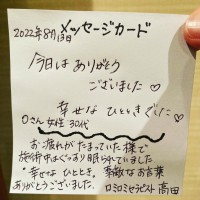 2022年8月13日 メッセージカード
今日は ありがとう
ございました♡
幸せな ひとときでした♡
Oさん 女性 30代
お疲れがたまっていた様で
施術中はぐっすり眠られていました
"幸せな ひととき" 素敵なお言葉
ありがとうございました。 ロミロミセラピスト 高田